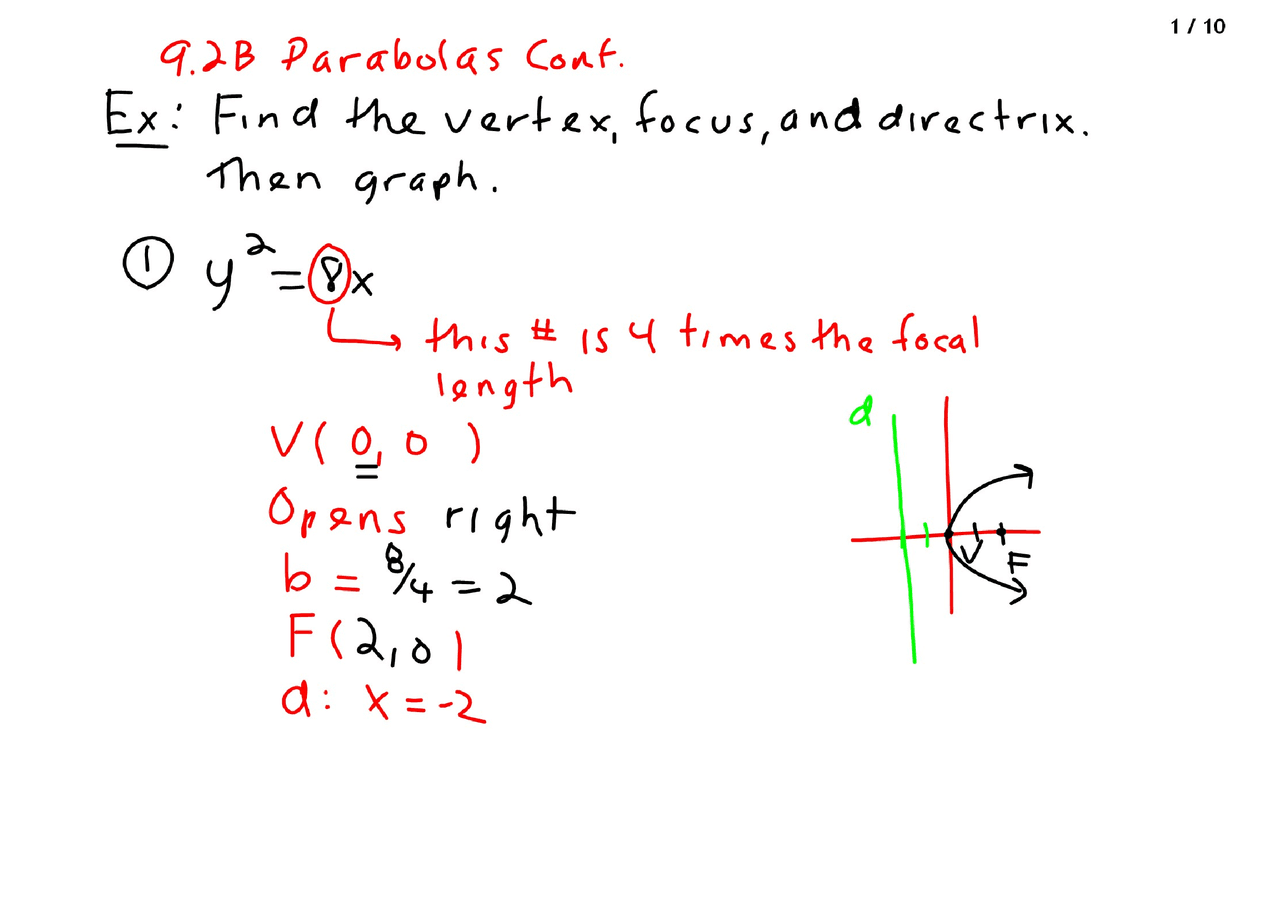 1 / 10
9.2B Parabolas Cont.
Ex: Find the vertex, focus, and directrix.
Then graph.
① y² = 8x
this # is 4 times the focal
length
V( 0, 0 )
Opens right
b = 8/4 = 2
F(2, 0)
d: x = -2
d
V
F